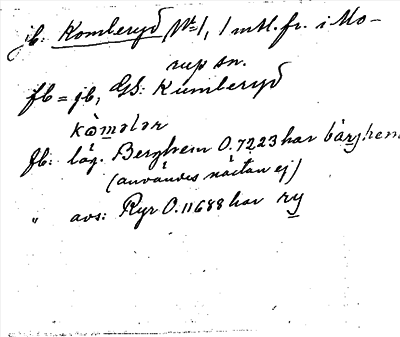 jb: Komberyd № 1, 1 mtl. fr. i Mo-
rup sn.
fb = jb, GS: Kumberyd
kòmələr
fb: läg. Berghem 0.7223 har bärjhem
(användes nästan ej)
" avs: Ryr 0.11688 har ry